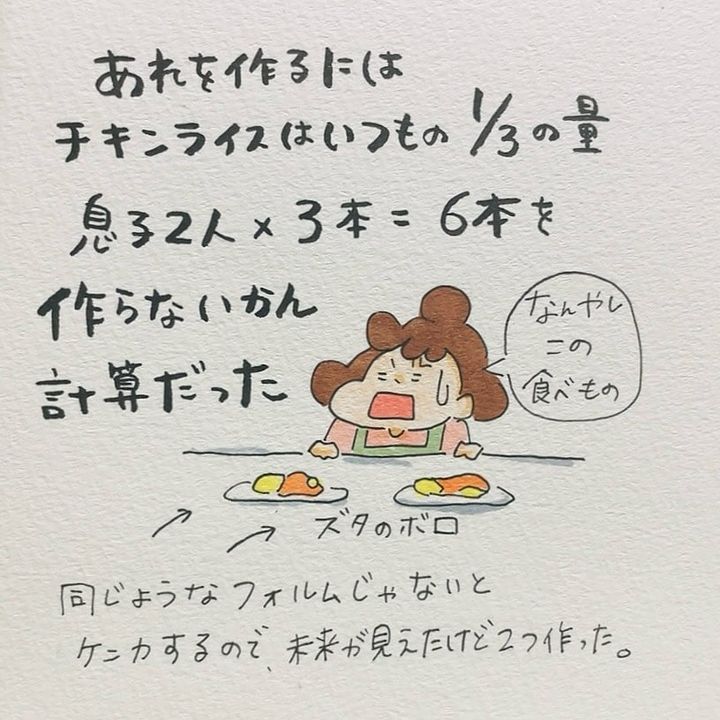 あれを作るには
チキンライスはいつもの 1/3の量
息子2人×3本=6本を
作らないかん
計算だった
なんやし
この
食べもの
ズタのボロ
同じようなフォルムじゃないと
ケンカするので、未来が見えたけど2つ作った。